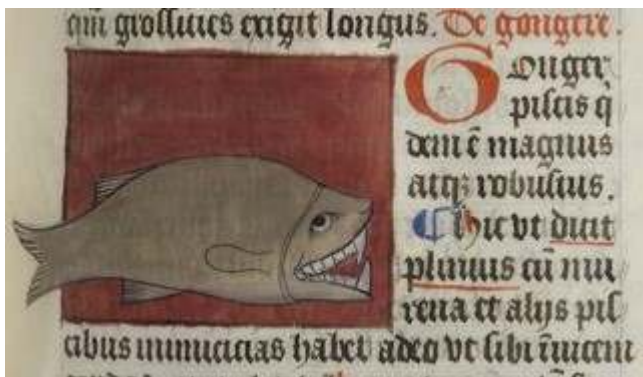 qm̄ grossicies exigit longus. De gongere.
Gonger
piscis q̇
dem ē magnus
atqꝫ robustus.
Hic vt dicit
plinius cū mu
rena et alijs pis
cibus inimicicias habet adeo vt sibi īuicem